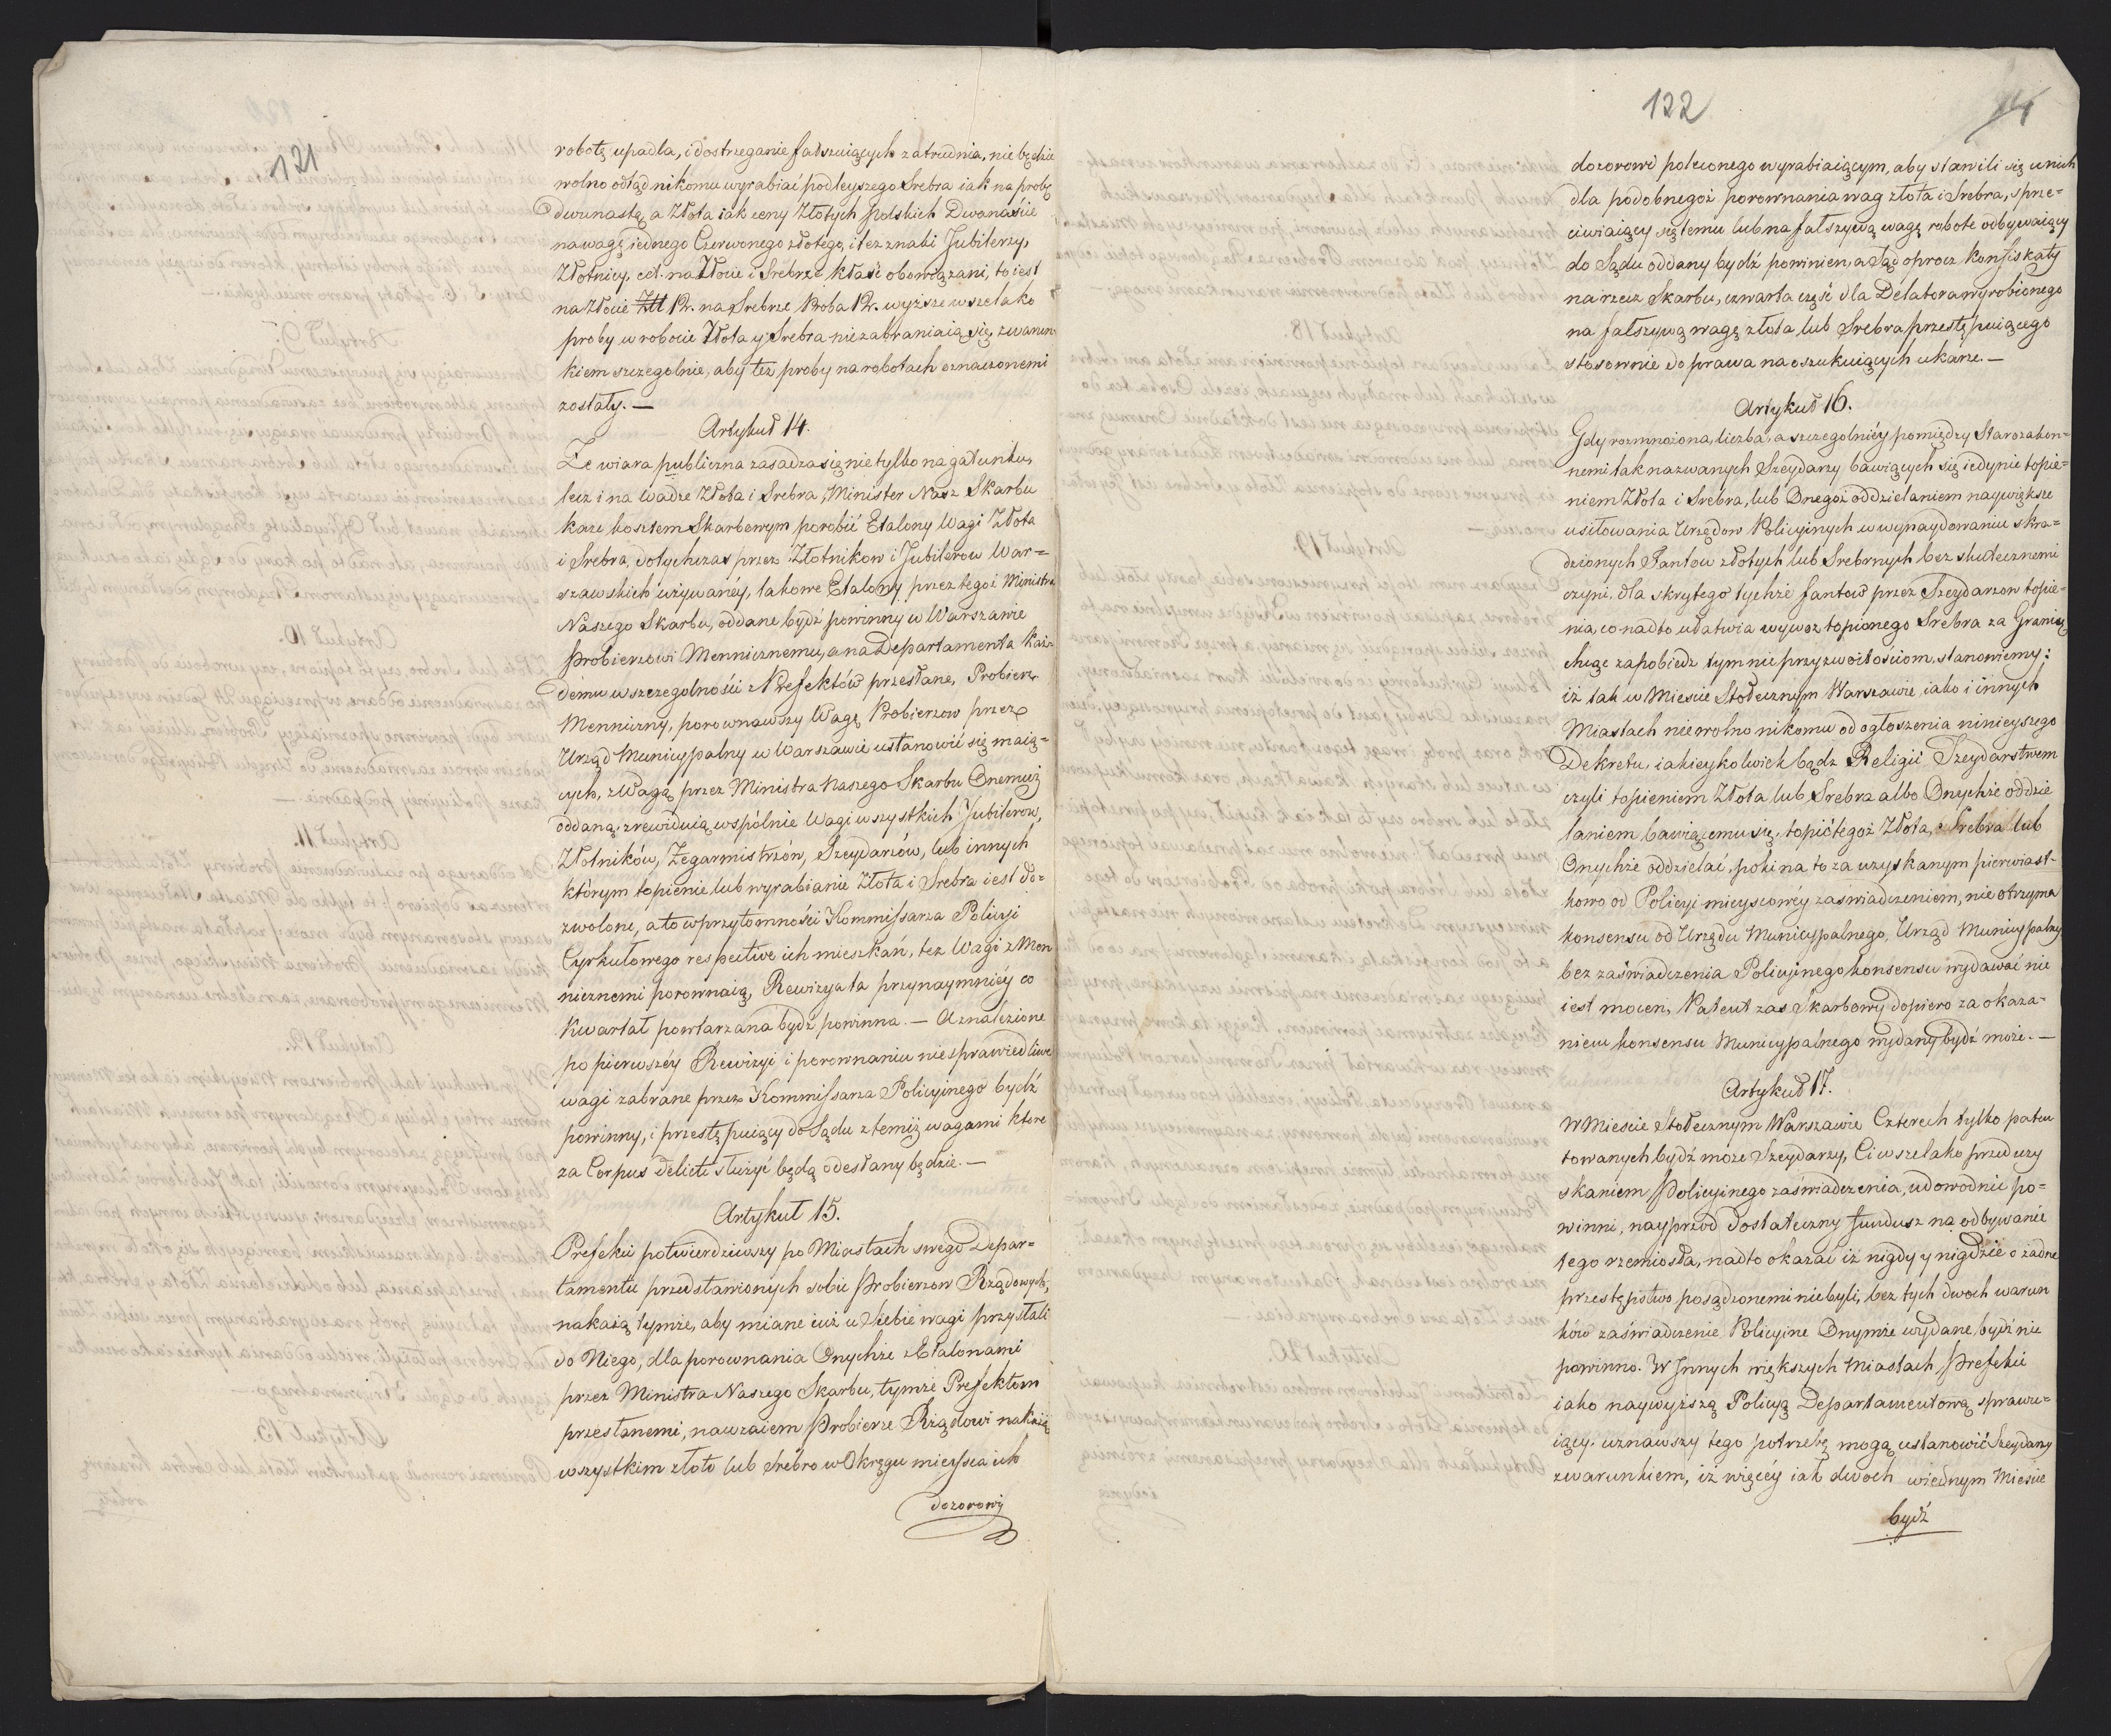 121
robotę upadla, i dostrzeganie fałszuiących zatrudnia, nie będzie
wolno odtąd nikomu wyrabiać podleyszego Srebra iak na probę
dwunastą, a Złota iak ceny Złotych polskich Dwanaście
na wagę iednego Czerwonego złotego, i też znaki Jubilerzy,
Złotnicy, ect. na Złocie i Srebrze kłaść obowiązani, to iest
na Złocie 12. na Srebrze Proba 12. wyższe wszelako
proby w robocie Złota y Srebra nie zabraniaią się, z warun-
kiem szczegolnie, aby też proby na robotach oznaczonemi
zostały. —
Artykuł 14.
Że wiara publiczna zasadza się nie tylko na gatunku,
lecz i na wadze Złota i Srebra, Minister Nasz Skarbu
każe kosztem Skarbowym porobić Etalony Wagi Złota
i Srebra, dotychczas przez Złotnikow i Jubilerow War=
szawskich używanéy, takowe Etalony przez tegoż Ministra
Naszego Skarbu, oddane bydź powinny w Warszawie
Probierzowi Menniczemu, a na Departamenta każ-
demu w szczegolności z Prefektów przesłane, Probierz
Menniczny, porownawszy Wagę Probierzow przez
Urząd Municypalny w Warszawie ustanowić się maią=
cych, z Wagą przez Ministra Naszego Skarbu Onemuż
oddaną, zrewiduią wspólnie Wagi wszystkich Jubilerow,
Złotników, Zegarmistrzów, Szeydarzów, lub innych
którym topienie lub wyrabianie Złota i Srebra iest do=
zwolone, a to w przytomności Kommissarza Policyi
Cyrkułowego respective ich mieszkań, też Wagi z Men
nicznemi porownaią, Rewizya ta przynaymniéy co
Kwartał powtarzana bydź powinna. — A znalezione
po pierwszéy Rewizyi i porownaniu niesprawiedliwe
wagi zabrane przez Kommissarza Policyinego bydź
powinny, i przestępuiący do Sądu z temiż wagami które
za Corpus delicti służyć będą odesłany będzie. —
Artykuł 15.
Prefekci potwierdziwszy po Miastach swego Depar=
tamentu przedstawionych sobie Probierzow Rządowych,
nakażą tymże, aby miane iuż u Siebie wagi przysłali
do Niego, dla porownania Onychże z Etalonami
przez Ministra Naszego Skarbu, tymże Prefektom
przesłanemi, nawzaiem Probierze Rządowi nakażą
wszystkim złoto lub Srebro w Okręgu mieysca ich
dozorowi
122
14
dozorowi poleconego wyrabiaiącym, aby stawili się u nich
dla podobnegoż porownania wag złota i Srebra, sprze=
ciwiaiący się temu lub na fałszywą wagę robotę odbywaiący
do Sądu oddany bydź powinien, a Sąd oprocz Konfiskaty
na rzecz Skarbu, czwarta część dla Delatora wyrobionego
na fałszywą wagę złota lub Srebra przestępuiącego
stosownie do prawa na oszukuiących ukarze. —
Artykuł 16.
Gdy rozmnożona liczba, a szczegolniéy pomiędzy Starozakon=
nemi tak nazwanych Szeydarzy bawiących się iedynie topie=
niem Złota i Srebra, lub Onegoż oddzielaniem naywiększe
usiłowania Urzędow Policyinych w wynaydowaniu skra=
dzionych Fantow złotych lub Srebrnych bezskutecznemi
czyni, dla skrytego tychże fantow przez Szeydarzow topie=
nia, co nadto ułatwia wywoz topionego Srebra za Granicę
chcąc zapobiedz tym nieprzyzwoitościom, stanowiemy:
iż tak w Miescie Stołecznym Warszawie, iako i innych
Miastach nie wolno nikomu od ogłoszenia ninieyszego
Dekretu, iakieykolwiek bądz Religii Szeydarstwem
czyli topieniem Złota lub Srebra albo Onychże oddzie
laniem bawiącemu się, topić tegoż Złota, Srebra lub
Onychże oddzielać, poki na to za uzyskanym pierwiast-
kowo od Policyi mieyscowéy zaświadczeniem, nie otrzyma
konsensu od Urzędu Municypalnego, Urząd Municypalny
bez zaświadczenia Policyinego konsensu wydawać nie
iest mocen, Patent zas Skarbowy dopiero za okaza-
niem konsensu Municypalnego wydany bydź może. —
Artykuł 17.
W Miescie Stołecznym Warszawie Czterech tylko paten
towanych bydź może Szeydarzy, Ci wszelako przed uzy
skaniem Policyinego zaświadczenia, udowodnić po=
winni, nayprzod dostateczny fundusz na odbywanie
tego rzemiosła, nadto okazać iż nigdy y nigdzie o żadne
przestępstwo posądzonemi nie byli, bez tych dwoch warun
ków zaświadczenie Policyine Onymże wydane bydź nie
powinno. W Innych większych Miastach, Prefekci
iako naywyższą Policyą Departamentową sprawu=
iący, uznawszy tego potrzebę mogą ustanowić Szeydarzy
z warunkiem, iż więcéy iak dwoch w iednym Miescie
bydź